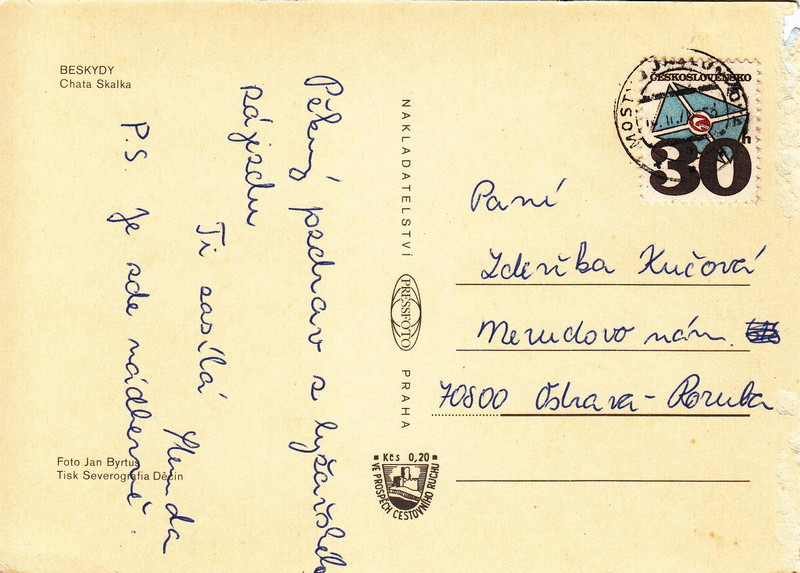 BESKYDY
Chata Skalka
Pěkný pozdrav z lyžařského
zájezdu
Ti zasílá
P.S. Je zde nádherně.
Foto Jan Byrtus
Tisk Severografia Děčín
NAKLADATELSTVÍ
PRESSFOTO
PRAHA
Kčs 0,20
VE PROSPĚCH CESTOVNÍHO RUCHU
ČESKOSLOVENSKO
30 h
MOSTY U JABLUNKOVA
Paní
Zdeňka Kučová
Nerudovo nám.
70800 Ostrava-Poruba